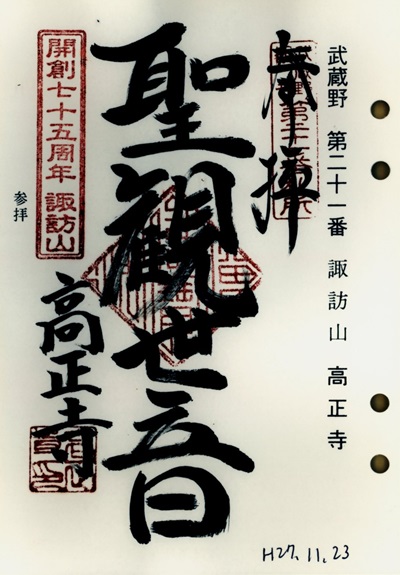 武蔵野 第二十一番 諏訪山 高正寺
奉拝
聖観世音
開創七十五周年 諏訪山
参拝
高正寺
H27.11.23